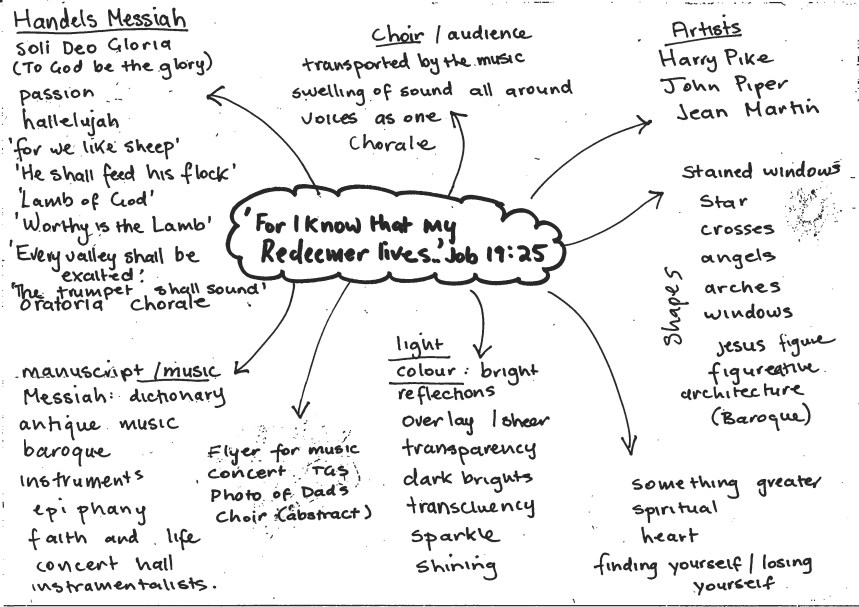 Handels Messiah
Soli Deo Gloria
(To God be the glory)
passion
hallelujah
'for we like sheep'
'He shall feed his flock'
'Lamb of God'
'Worthy is the Lamb'
'Every valley shall be
exalted!'
'The trumpet shall sound'
Oratoria Chorale
Choir / audience
transported by the music
swelling of sound all around
voices as one
Chorale
Artists
Harry Pike
John Piper
Jean Martin
'For I Know that my
Redeemer lives..' Job 19:25
stained windows
Star
crosses
angels
arches
windows
shapes
jesus figure
figureative
architecture
(Baroque)
manuscript / music
Messiah: dictionary
antique music
baroque
instruments
epiphany
faith and life
concert hall
instramentalists.
Flyer for music
concert TGS
Photo of Dads
Choir (abstract)
light
colour: bright
reflections
overlay / sheer
transparency
dark brights
transcluency
sparkle
shining
something greater
spiritual
heart
finding yourself / losing
yourself